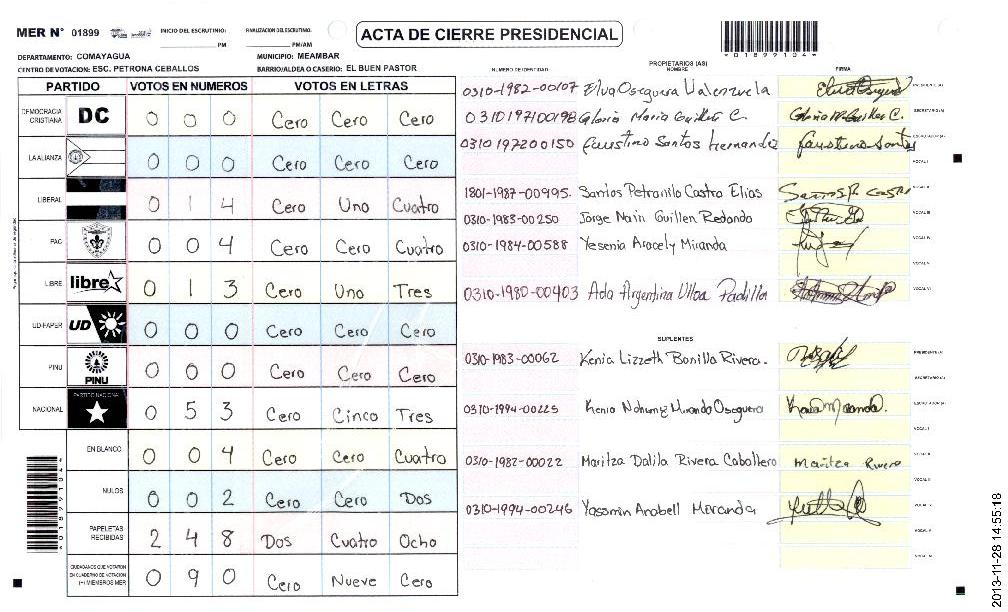 MER N° 01899 INICIO DEL ESCRUTINIO: PM FINALIZACION DEL ESCRUTINIO: PM/AM
ACTA DE CIERRE PRESIDENCIAL
DEPARTAMENTO: COMAYAGUA MUNICIPIO: MEAMBAR
CENTRO DE VOTACION: ESC. PETRONA CEBALLOS BARRIO/ALDEA O CASERIO: EL BUEN PASTOR
PARTIDO VOTOS EN NUMEROS VOTOS EN LETRAS
DEMOCRACIA CRISTIANA DC 0 0 0 Cero Cero Cero
LA ALIANZA 0 0 0 Cero Cero Cero
LIBERAL 0 1 4 Cero Uno Cuatro
PAC 0 0 4 Cero Cero Cuatro
LIBRE libre 0 1 3 Cero Uno Tres
UD-FAPER UD 0 0 0 Cero Cero Cero
PINU PINU 0 0 0 Cero Cero Cero
NACIONAL PARTIDO NACIONAL 0 5 3 Cero Cinco Tres
EN BLANCO 0 0 4 Cero Cero Cuatro
NULOS 0 0 2 Cero Cero Dos
PAPELETAS RECIBIDAS 2 4 8 Dos Cuatro Ocho
CIUDADANOS QUE VOTARON EN CUADERNO DE VOTACION (+) MIEMBROS MER 0 9 0 Cero Nueve Cero
*01899104*
PROPIETARIOS (AS)
NUMERO DE IDENTIDAD NOMBRE FIRMA
0310-1982-00107 Elva Oseguera Valenzuela
0310197100198 Gloria Maria Guillen C.
0310197200150 Faustino Santos Hernandez Faustino Santos
1801-1987-00995. Santos Petronilo Castro Elias
0310-1983-00250 Jorge Nain Guillen Redondo
0310-1984-00588 Yesenia Aracely Miranda
0310-1980-00403 Ada Argentina Ulloa Padilla
SUPLENTES
0310-1983-00062 Kenia Lizzeth Bonilla Rivera.
0310-1994-00225 Kenia Miranda Oseguera
0310-1982-00022 Maritza Dalila Rivera Caballero Maritza Rivera
0310-1994-00246 Yassmin Anabell Meranda
2013-11-28 14:55:18